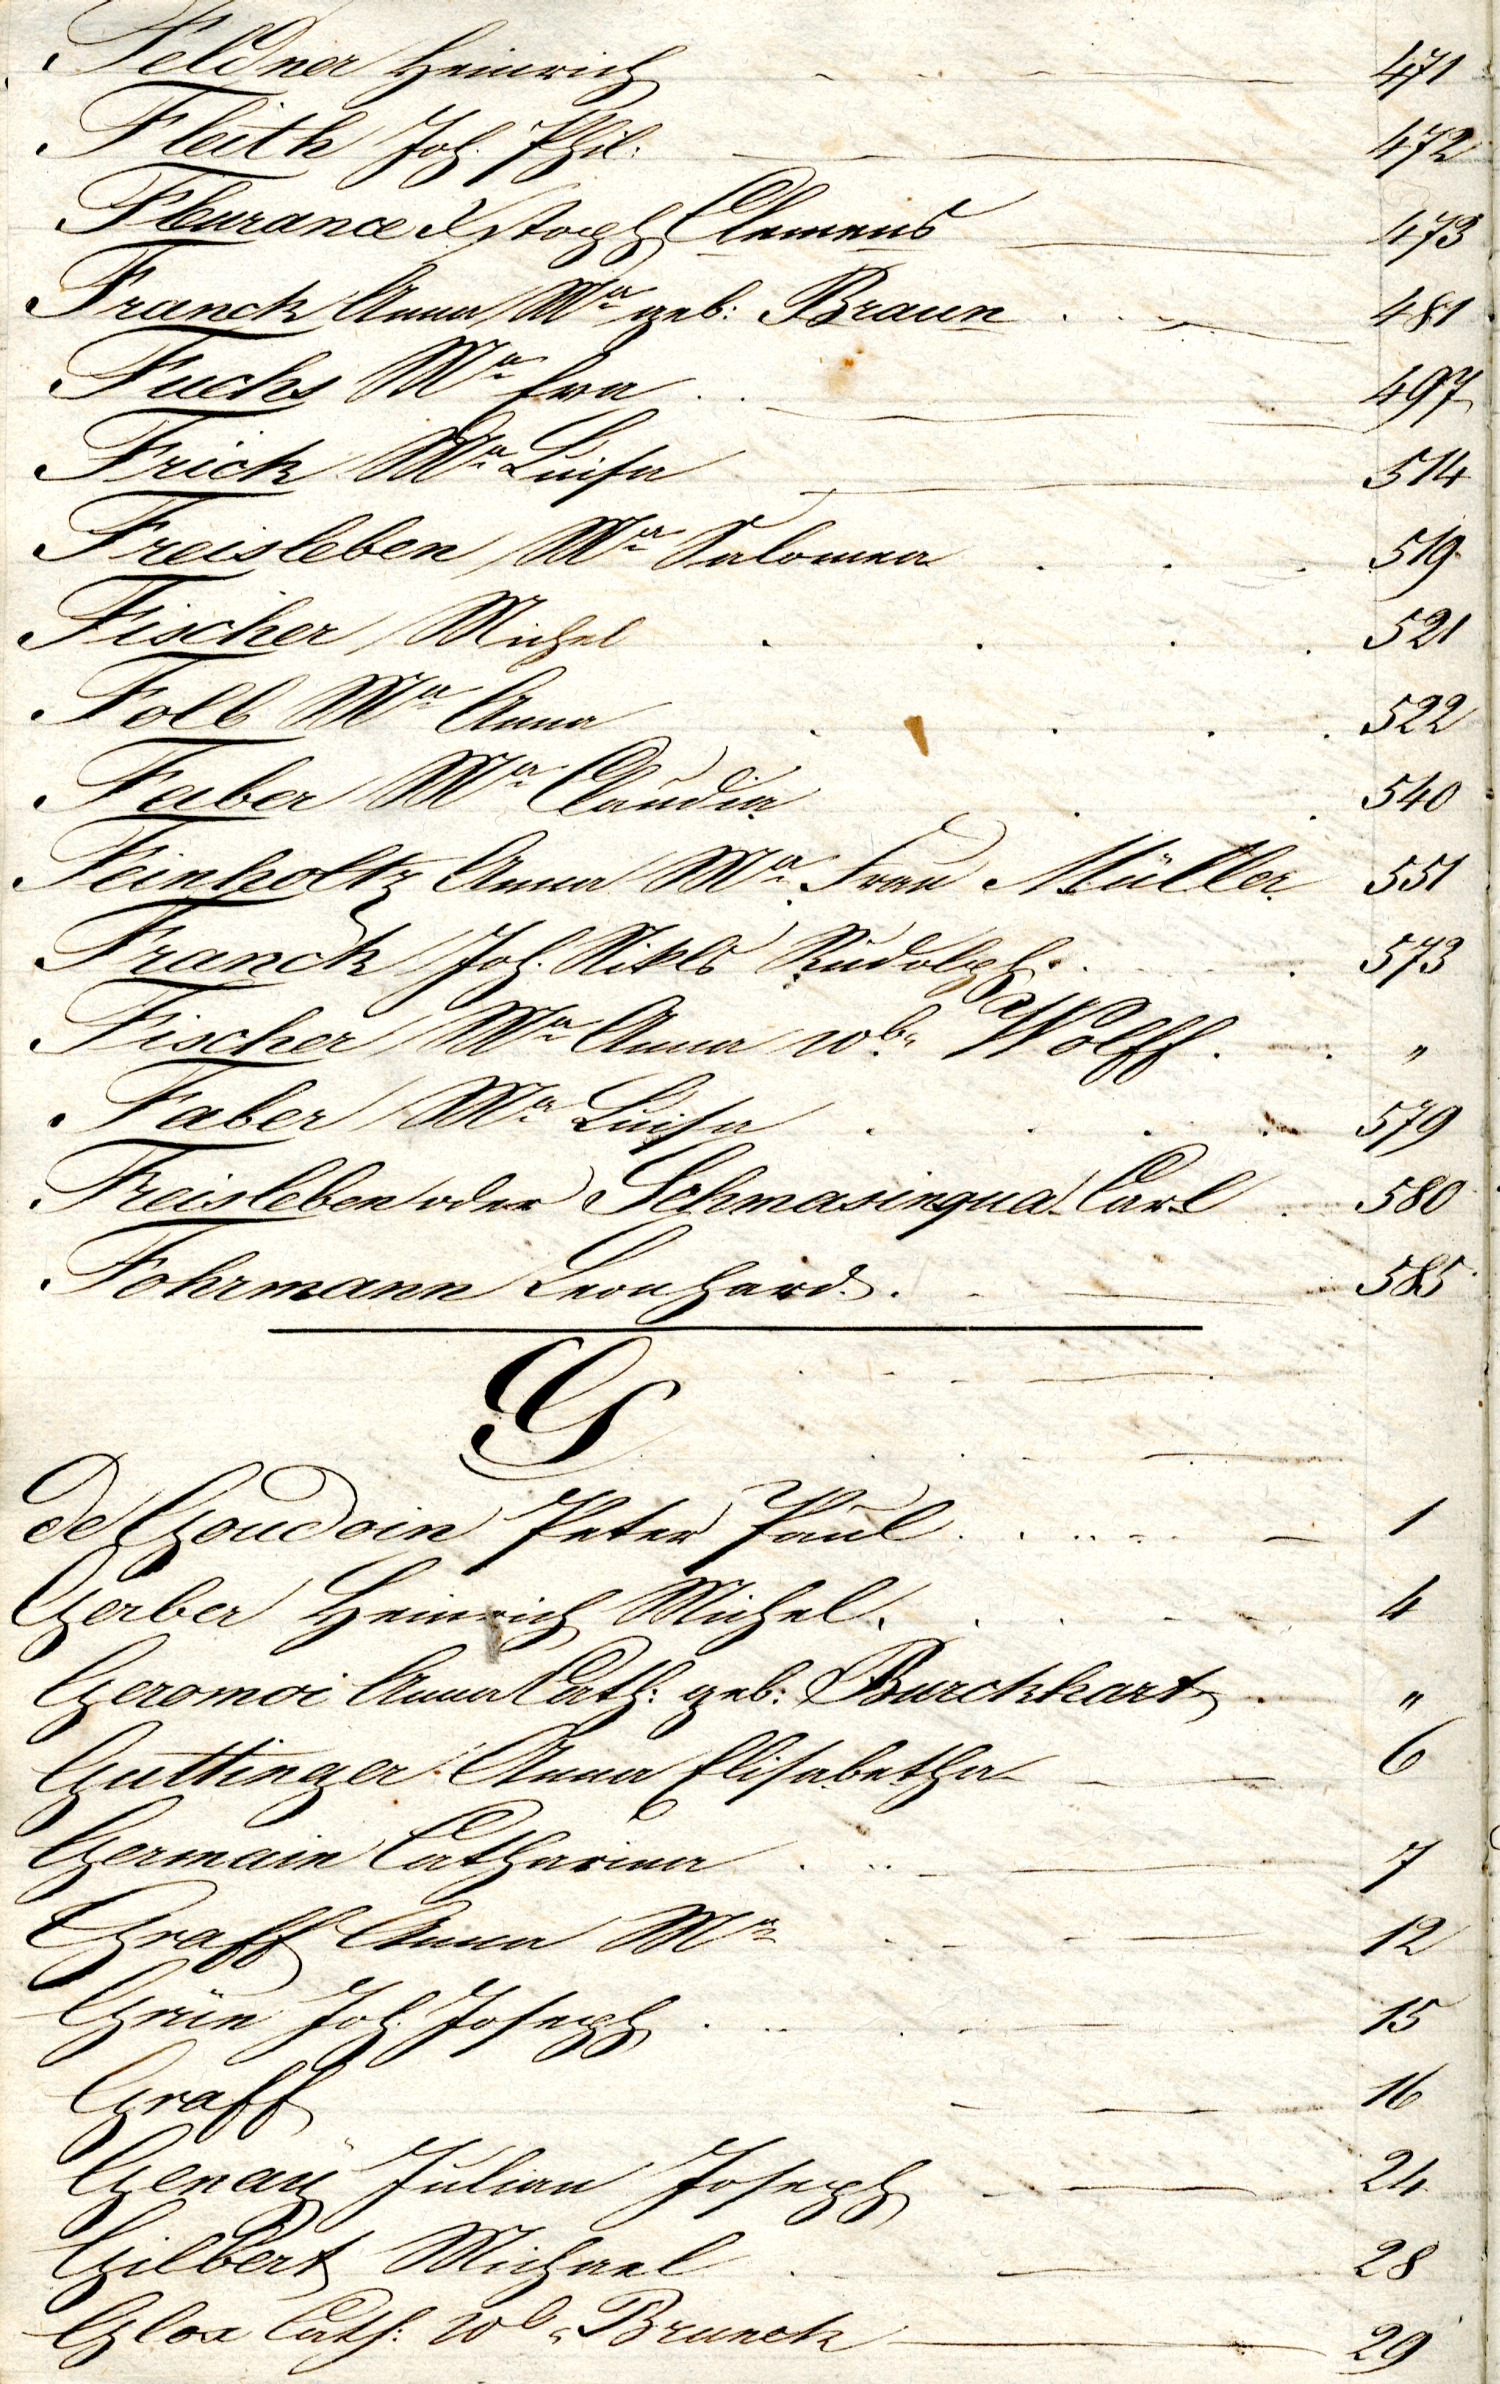 Feldner Heinrich 471
Fleith Joh. Phil: 472
Fleurance Xstoph Clemens 473
Franck Anna Ma geb: Braun 481
Fuchs Ma Eva 497
Frick Ma Luisa 514
Freisleben Ma Salomea 519
Fischer Michel 521
Folb Ma Anna 522
Faber Ma Claudia 540
Feinholtz Anna Ma Frau Müller 551
Franck Joh. Nikls Rudolph 573
Fischer Ma Anna wb. Wolff. "
Faber Ma Luisa 579
Freisleben oder Schmasinqua Carl 580
Fohrmann Leonhard. 585
G
De Goudoin Peter Paul 1
Gerber Heinrich Michel. 4
Geromoi Anna Cath: geb: Burckhart "
Guttinger Anna Elisabetha 6
Germain Catharina 7
Graff Anna Ma 12
Grün Joh. Joseph 15
Graff 16
Genaÿ Julian Joseph 24
Gilbert Michael 28
Glox Cath: wb. Brunck 29